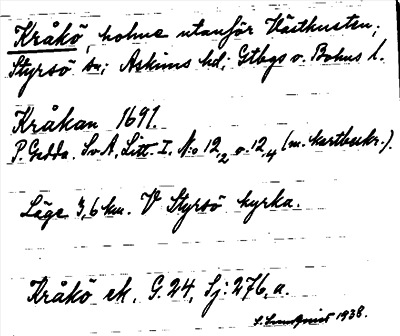 Kråkö, holme utanför Västkusten;
Styrsö sn; Askims hd; Gtbgs o. Bohus l.
Kråkan 1691.
P. Gedda. Sv. A, Litt. I. No 12,2 o. 12,4 (m. kartbeskr.).
Läge 3,6 km. V Styrsö kyrka.
Kråkö ek. G. 24, Sj: 276, a.
S. 1938.